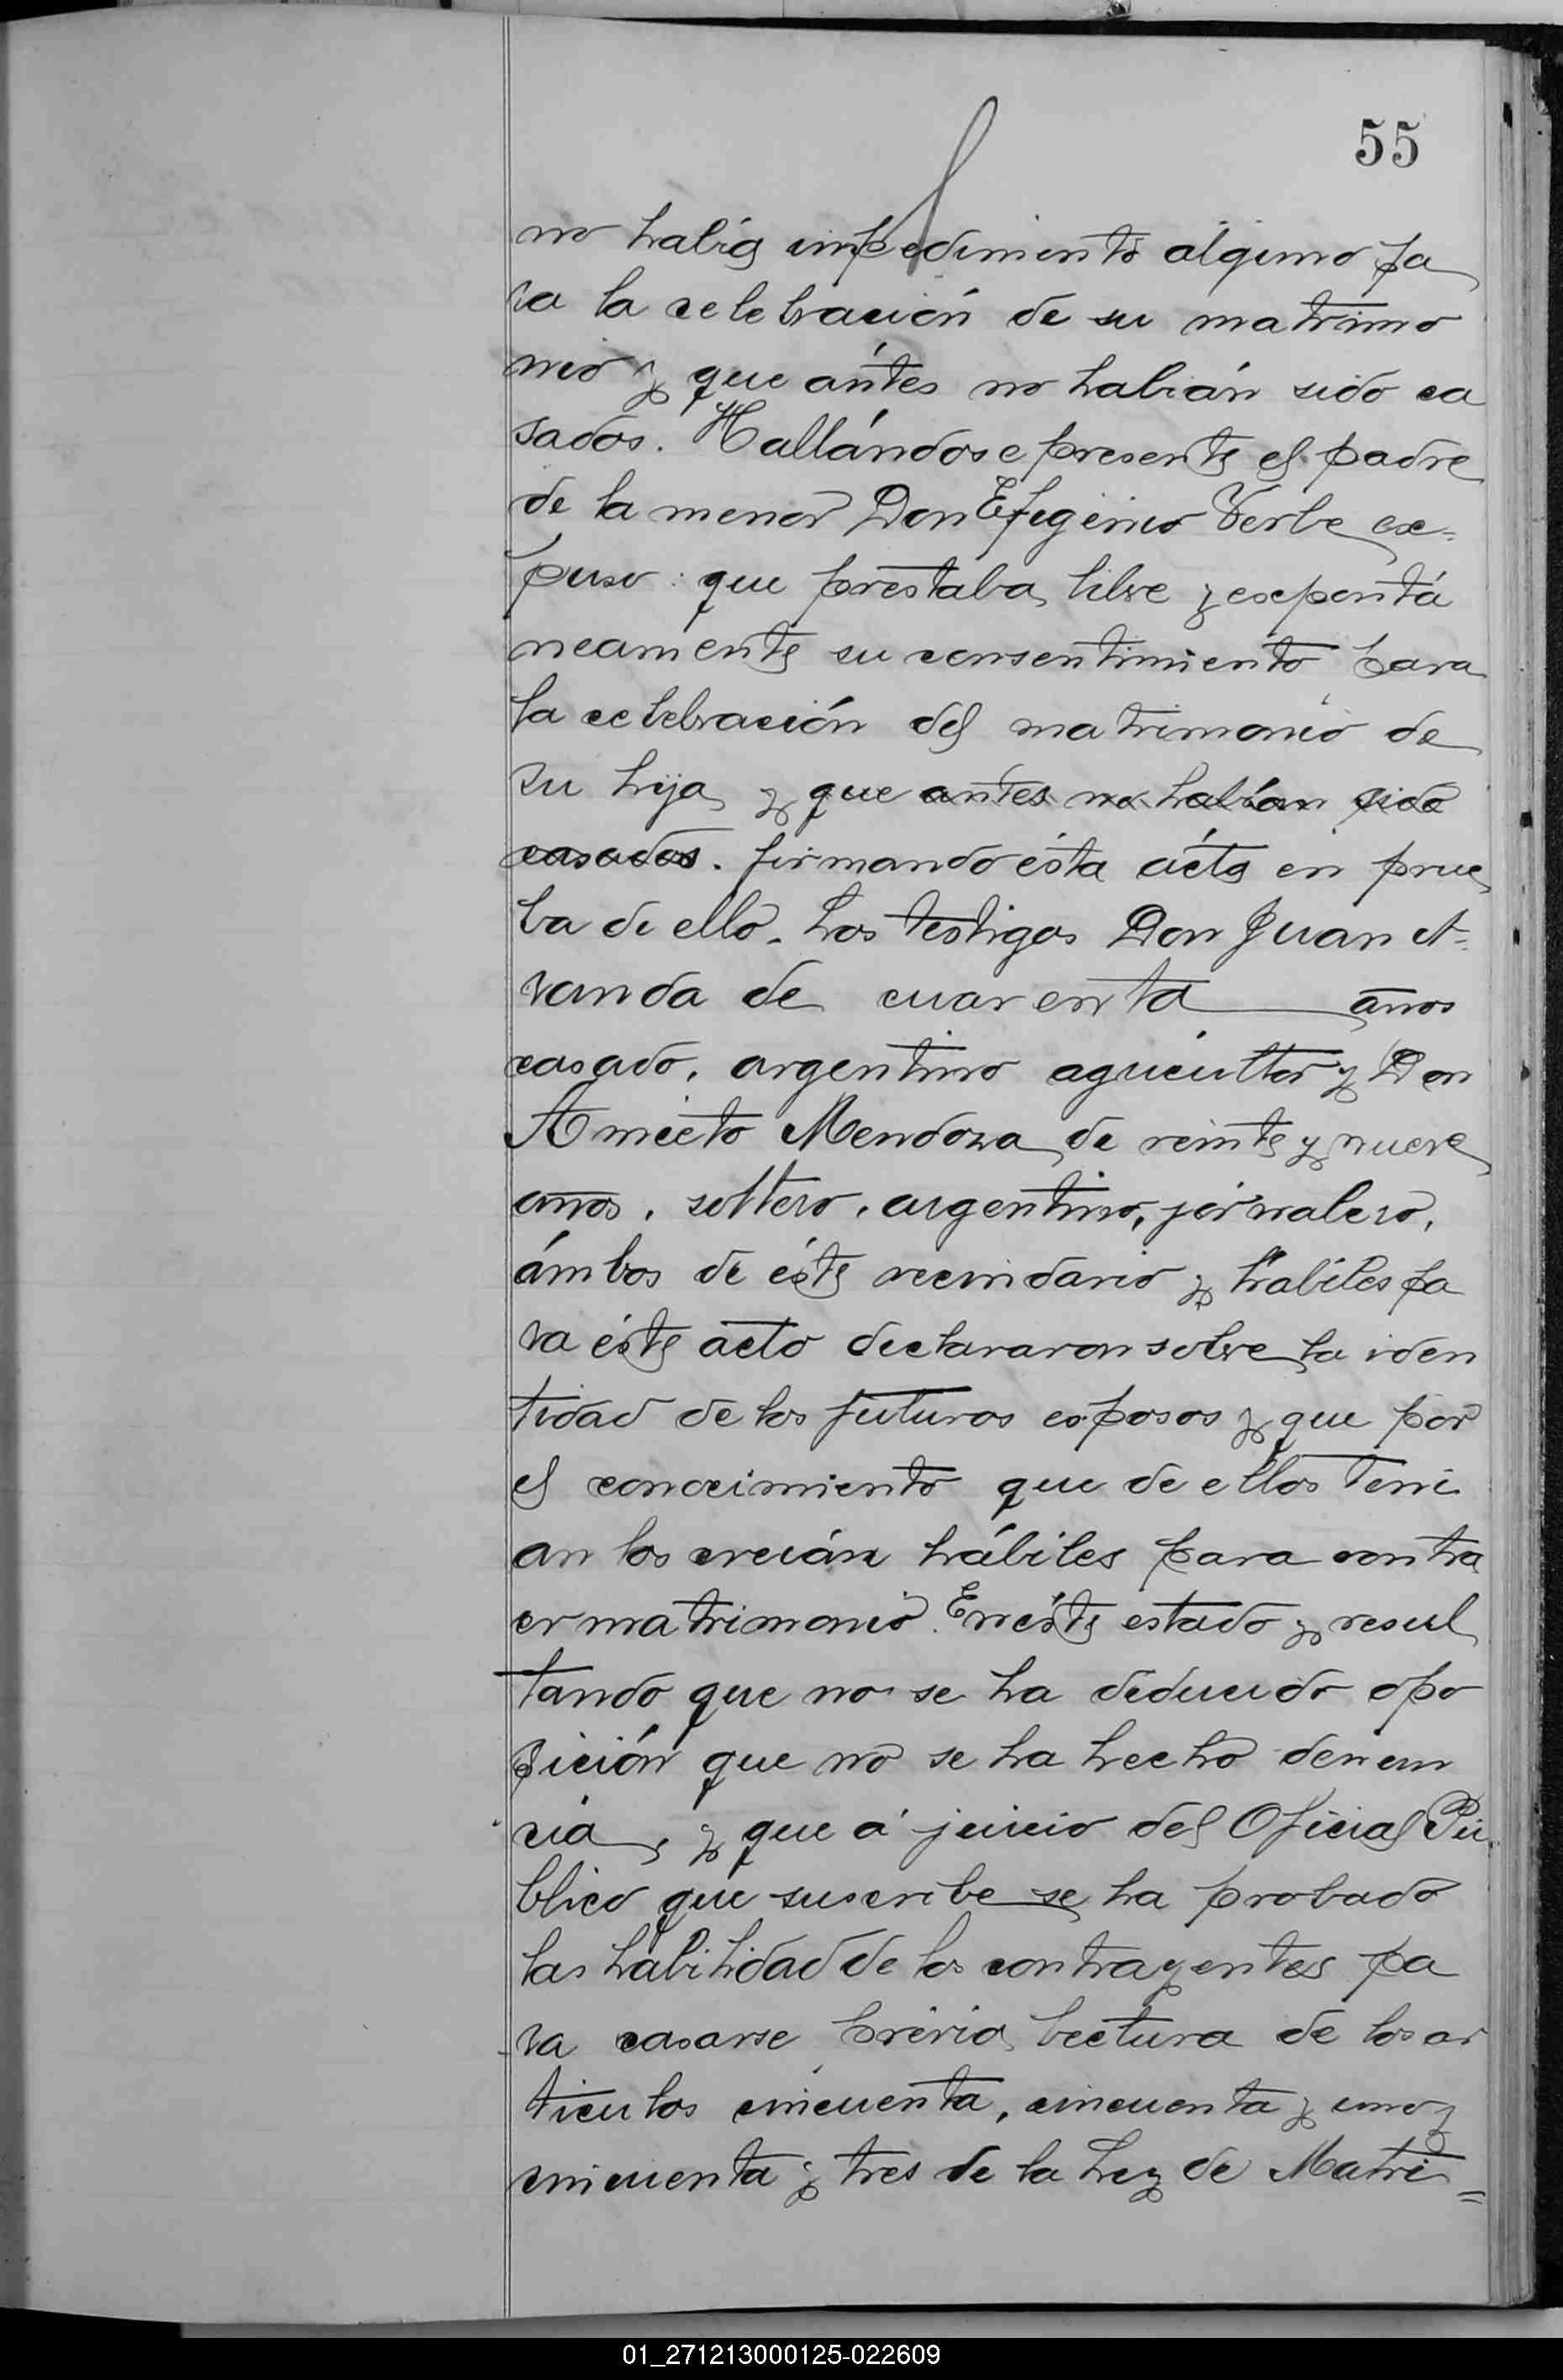 55
no había impedimento alguno pa
ra la celebración de su matrimo
nio y que ántes no habián sido ca
sados. Hallándose presente el padre
de la menor Don Efigenio Verbe ex=
puso: que prestaba libre y expontá
neamente su consentimiento para
la celebración del matrimonio de
su hija y que antes no habían sido
casados. firmando ésta ácta en prue
ba de ello. Los testigos Don Juan A=
randa de cuarenta años
casado, argentino agricultor y Don
Aniceto Mendoza de veinte y nueve
años, soltero, argentino, jornalero,
ámbos de éste vecindario y hábiles pa
ra éste acto declararon sobre la iden
tidad de los futuros esposos y que por
el conocimiento que de ellos teni
an los creián hábiles para contra
er matrimonio. En éste estado y resul
tando que no se ha deducido opo
sición que no se ha hecho denun
cia, y que á juicio del Oficial Pú
blico que suscribe se ha probado
las habilidad de los contrayentes pa
ra casarse previa lectura de los ar
ticulos cincuenta, cincuenta y uno y
cincuenta y tres de la Ley de Matri=
01_271213000125-022609